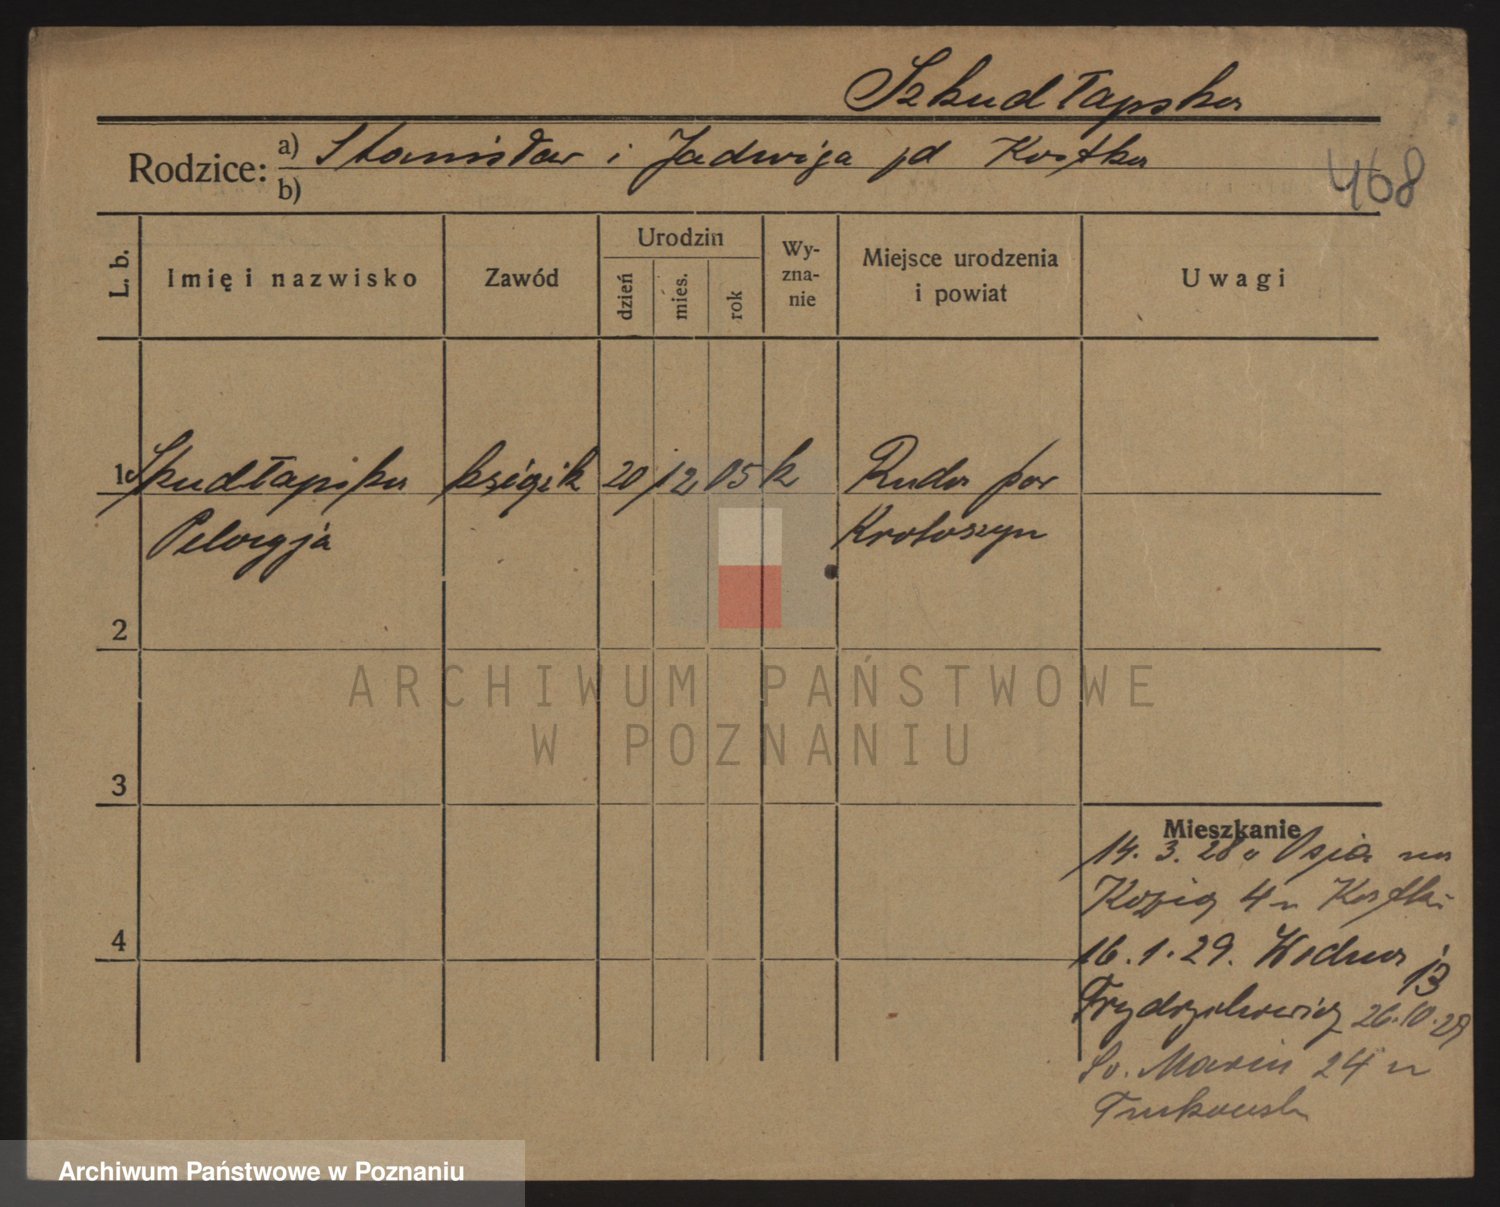 Szkudłapska
Rodzice: a) Stanisław i Jadwiga pd Kostka
b)
468
L. b.
Imię i nazwisko
Zawód
Urodzin
dzień
mies.
rok
Wy-
zna-
nie
Miejsce urodzenia
i powiat
Uwagi
1 Skudłapska ksiązk 20 12 05 k Ruda por
Pelagja Krotoszyn
2
3
4
Mieszkanie
14. 3. 28 na
4 u Kostki
16. 1. 29. Wodna 13
26.10.29
Św. Marcin 24 u
ARCHIWUM PAŃSTWOWE
W POZNANIU
Archiwum Państwowe w Poznaniu